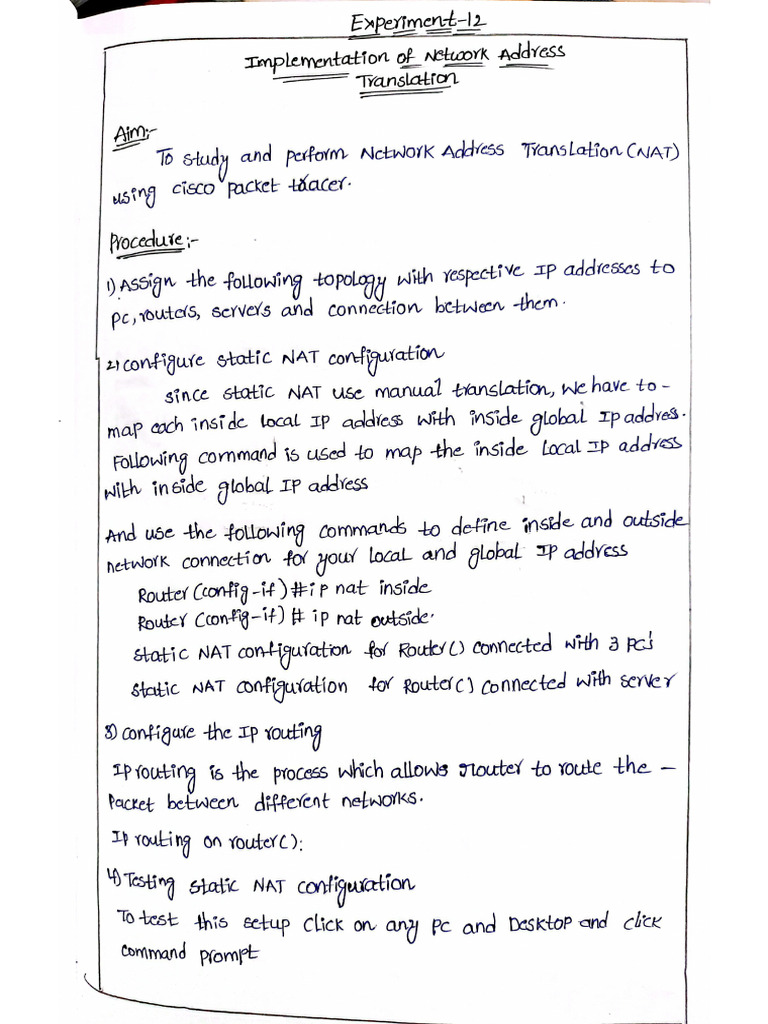 Experiment-12
Implementation of Network Address
Translation
Aim:-
To study and perform Network Address Translation (NAT)
using cisco packet tracer.
Procedure:-
1) Assign the following topology with respective IP addresses to
pc, routers, servers and connection between them.
2) configure static NAT configuration
since static NAT use manual translation, we have to -
map each inside local IP address with inside global Ip addres.
Following command is used to map the inside local IP address
with inside global IP address
And use the following commands to define inside and outside
network connection for your local and global IP address
Router (config-if) # ip nat inside
Router (config-if) # ip nat outside.
static NAT configuration for Router() connected with 3 pc's
static NAT configuration for Router() connected with server
3) configure the IP routing
Ip routing is the process which allows router to route the -
Packet between different networks.
Ip routing on router():
4) Testing static NAT configuration
To test this setup click on any pc and Desktop and click
command prompt